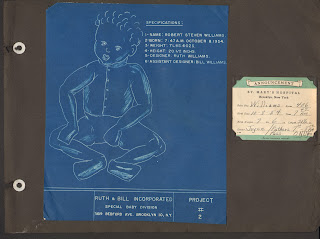 SPECIFICATIONS:
1-NAME: ROBERT STEVEN WILLIAMS
2-BORN: 7:47 A.M. OCTOBER 5, 1954.
3-WEIGHT: 7 LBS. 6 OZS.
4-HEIGHT: 20 1/2 INCHS.
5-DESIGNER: RUTH WILLIAMS.
6-ASSISTANT DESIGNER: BILL WILLIAMS.
RUTH & BILL INCORPORATED
SPECIAL BABY DIVISION
BEDFORD AVE. BROOKLYN 10, N.Y.
PROJECT
#
2
ANNOUNCEMENT
ST. MARY'S HOSPITAL
Brooklyn, New York
Williams